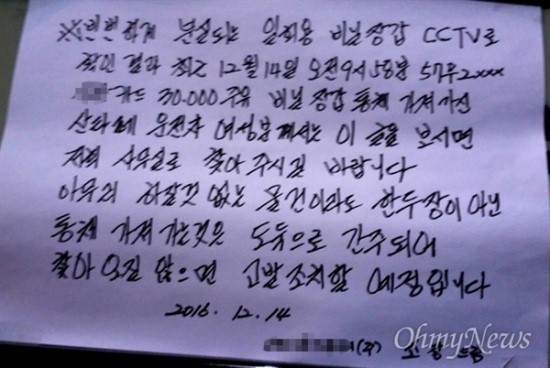 ※빈번하게 분실되는 일회용 비닐장갑 CCTV로
확인 결과 최근 12월14일 오전9시58분 57우2xxx
카드 30.000주유 비닐장갑 통째 가져가신
산타페 운전자 여성분께서는 이 글을 보시면
저희 사무실로 찾아 주시길 바랍니다
아무리 하찮것 없는 물건이라도 한두장이 아닌
통째 가져가는것은 도둑으로 간주되어
찾아오질 않으면 고발조치할 예정입니다
2016. 12. 14
(주) 소장
OhmyNews